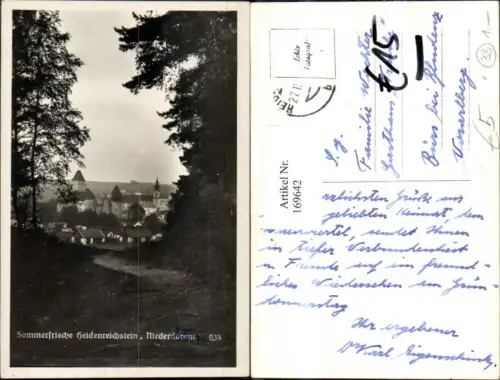 Sommerfrische Heidenreichstein, Niederdonau 634
Echte
Fotografie
Artikel Nr.
169642
€15
(33) 1.-
S. g.
Familie
Gasthaus
Bürs bei Bludenz
Vorarlberg
herzlichsten Grüße aus
geliebten Heimat, dem
Waldviertel, sendet Ihnen
in tiefer Verbundenheit
u. Freude auf ein freund-
liches Wiedersehen am Grün-
donnerstag
Ihr ergebener
Dr Karl